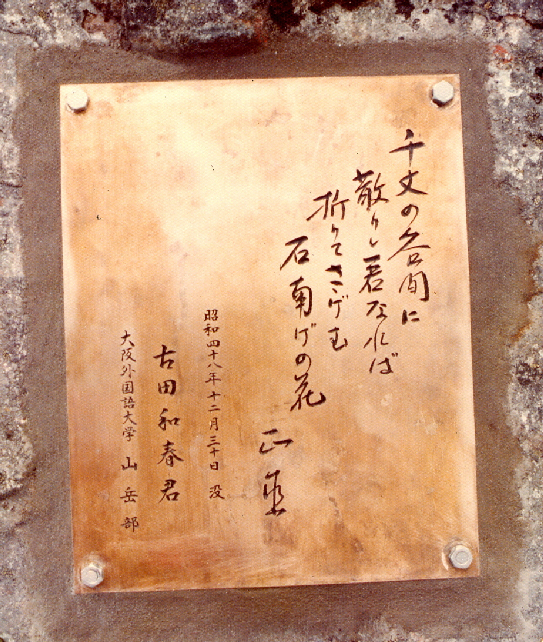 千丈の谷間に
散りし君なれば
折りてさゝげむ
石南げの花
正
昭和四十八年十二月三十日 没
古田和春君
大阪外国語大学 山岳部